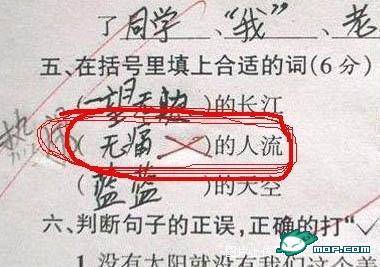 了同学、“我”、老
五、在括号里填上合适的词(6分)
(一望无
)的长江
(无痛)的人流
(蓝蓝)的天空
六、判断句子的正误,正确的打“✓
1.没有太阳就没有我们这个美
MOP.COM